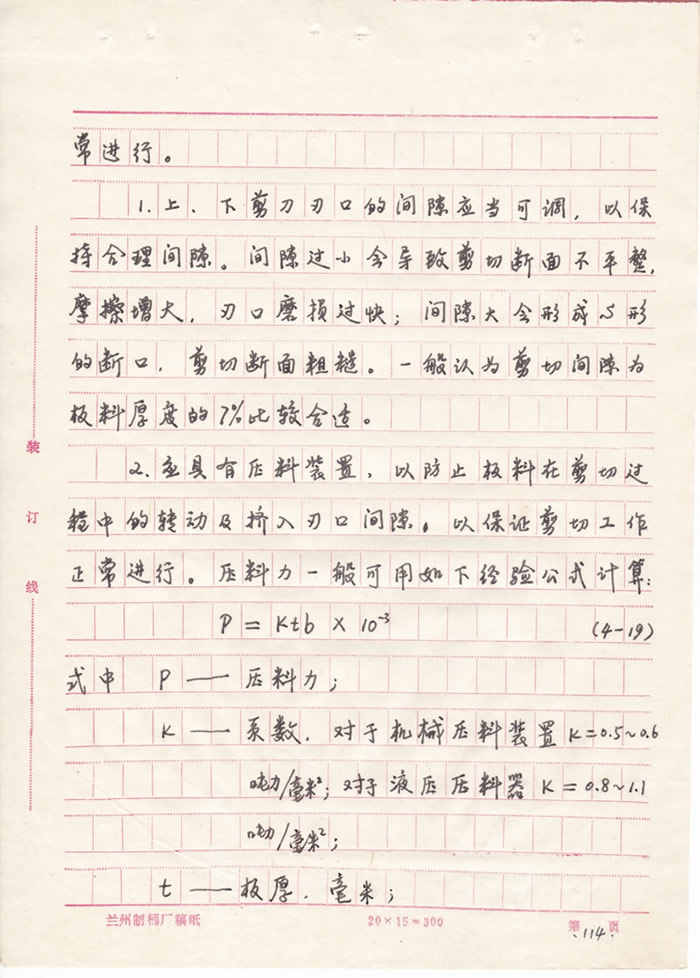 常进行。
1.上、下剪刀刃口的间隙应当可调，以保
持合理间隙。间隙过小会导致剪切断面不平整，
摩擦增大，刃口磨损过快；间隙大会形成S形
的断口，剪切断面粗糙。一般认为剪切间隙为
板料厚度的7%比较合适。
2.应具有压料装置，以防止板料在剪切过
程中的转动及挤入刃口间隙，以保证剪切工作
正常进行。压料力一般可用如下经验公式计算：
P = Ktb × 10⁻³ (4-19)
式中 P —— 压料力；
K —— 系数，对于机械压料装置 K=0.5~0.6
吨力/毫米²；对于液压压料器 K=0.8~1.1
吨力/毫米²；
t —— 板厚，毫米；
装订线
兰州制桶厂稿纸 20×15=300 第114页